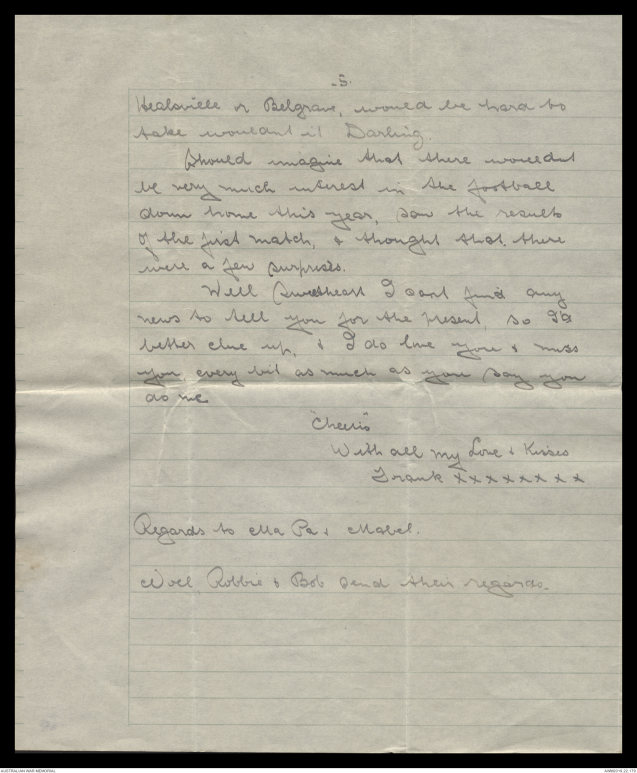 -5-
Healsville or Belgrave, would be hard to
take wouldnt it Darling.
Should imagine that there wouldnt
be very much interest in the football
down home this year, saw the results
of the first match, & thought that there
were a few surprises.
Well Sweetheart I cant find any
news to tell you for the present, so I'd
better clue up, & I do love you & miss
you every bit as much as you say you
do me
"Cheerio"
With all my Love & Kisses
Frank x x x x x x x x
Regards to Ma Pa & Mabel.
Noel, Robbie & Bob send their regards.
AUSTRALIAN WAR MEMORIAL